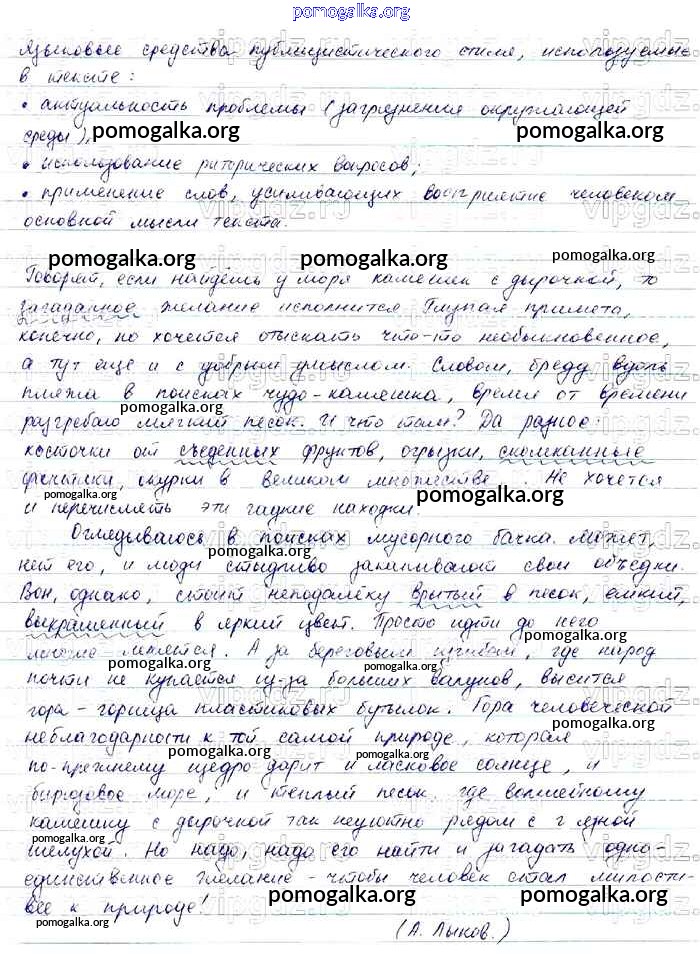 pomogalka.org
Языковые средства публицистического стиля, используемые
в тексте:
• актуальность проблемы (загрязнения окружающей
среды),
• использование риторических вопросов;
• применение слов, усиливающих восприятие человеком
основной мысли текста.
Говорят, если найдёшь у моря камешек с дырочкой, то
загаданное желание исполнится. Глупая примета,
конечно, но хочется отыскать что-то необыкновенное,
а тут еще и с добрым умыслом. Словом, бреду вдоль
пляжа в поисках чудо-камешка, время от времени
разгребаю мягкий песок. И что там? Да разное:
косточки от съеденных фруктов, огрызки, скомканные
фантики, окурки в великом множестве. Не хочется
и перечислять эти гадкие находки.
Оглядываюсь в поисках мусорного бачка. Может,
нет его, и люди стыдливо закапывают свои объедки.
Вон, однако, стоит неподалёку врытый в песок, ёмкий,
выкрашенный в яркий цвет. Просто идти до него
многие ленятся. А за береговым изгибом, где народ
почти не купается из-за больших валунов, высится
гора-горища пластиковых бутылок. Гора человеческой
неблагодарности к той самой природе, которая
по-прежнему щедро дарит и ласковое солнце, и
бирюзовое море, и теплый песок где волшебному
камешку с дырочкой так неуютно рядом с г язной
шелухой. Но надо, надо его найти и загадать одно-
единственное желание - чтобы человек стал милости-
вее к природе!
(А. Лыков.)